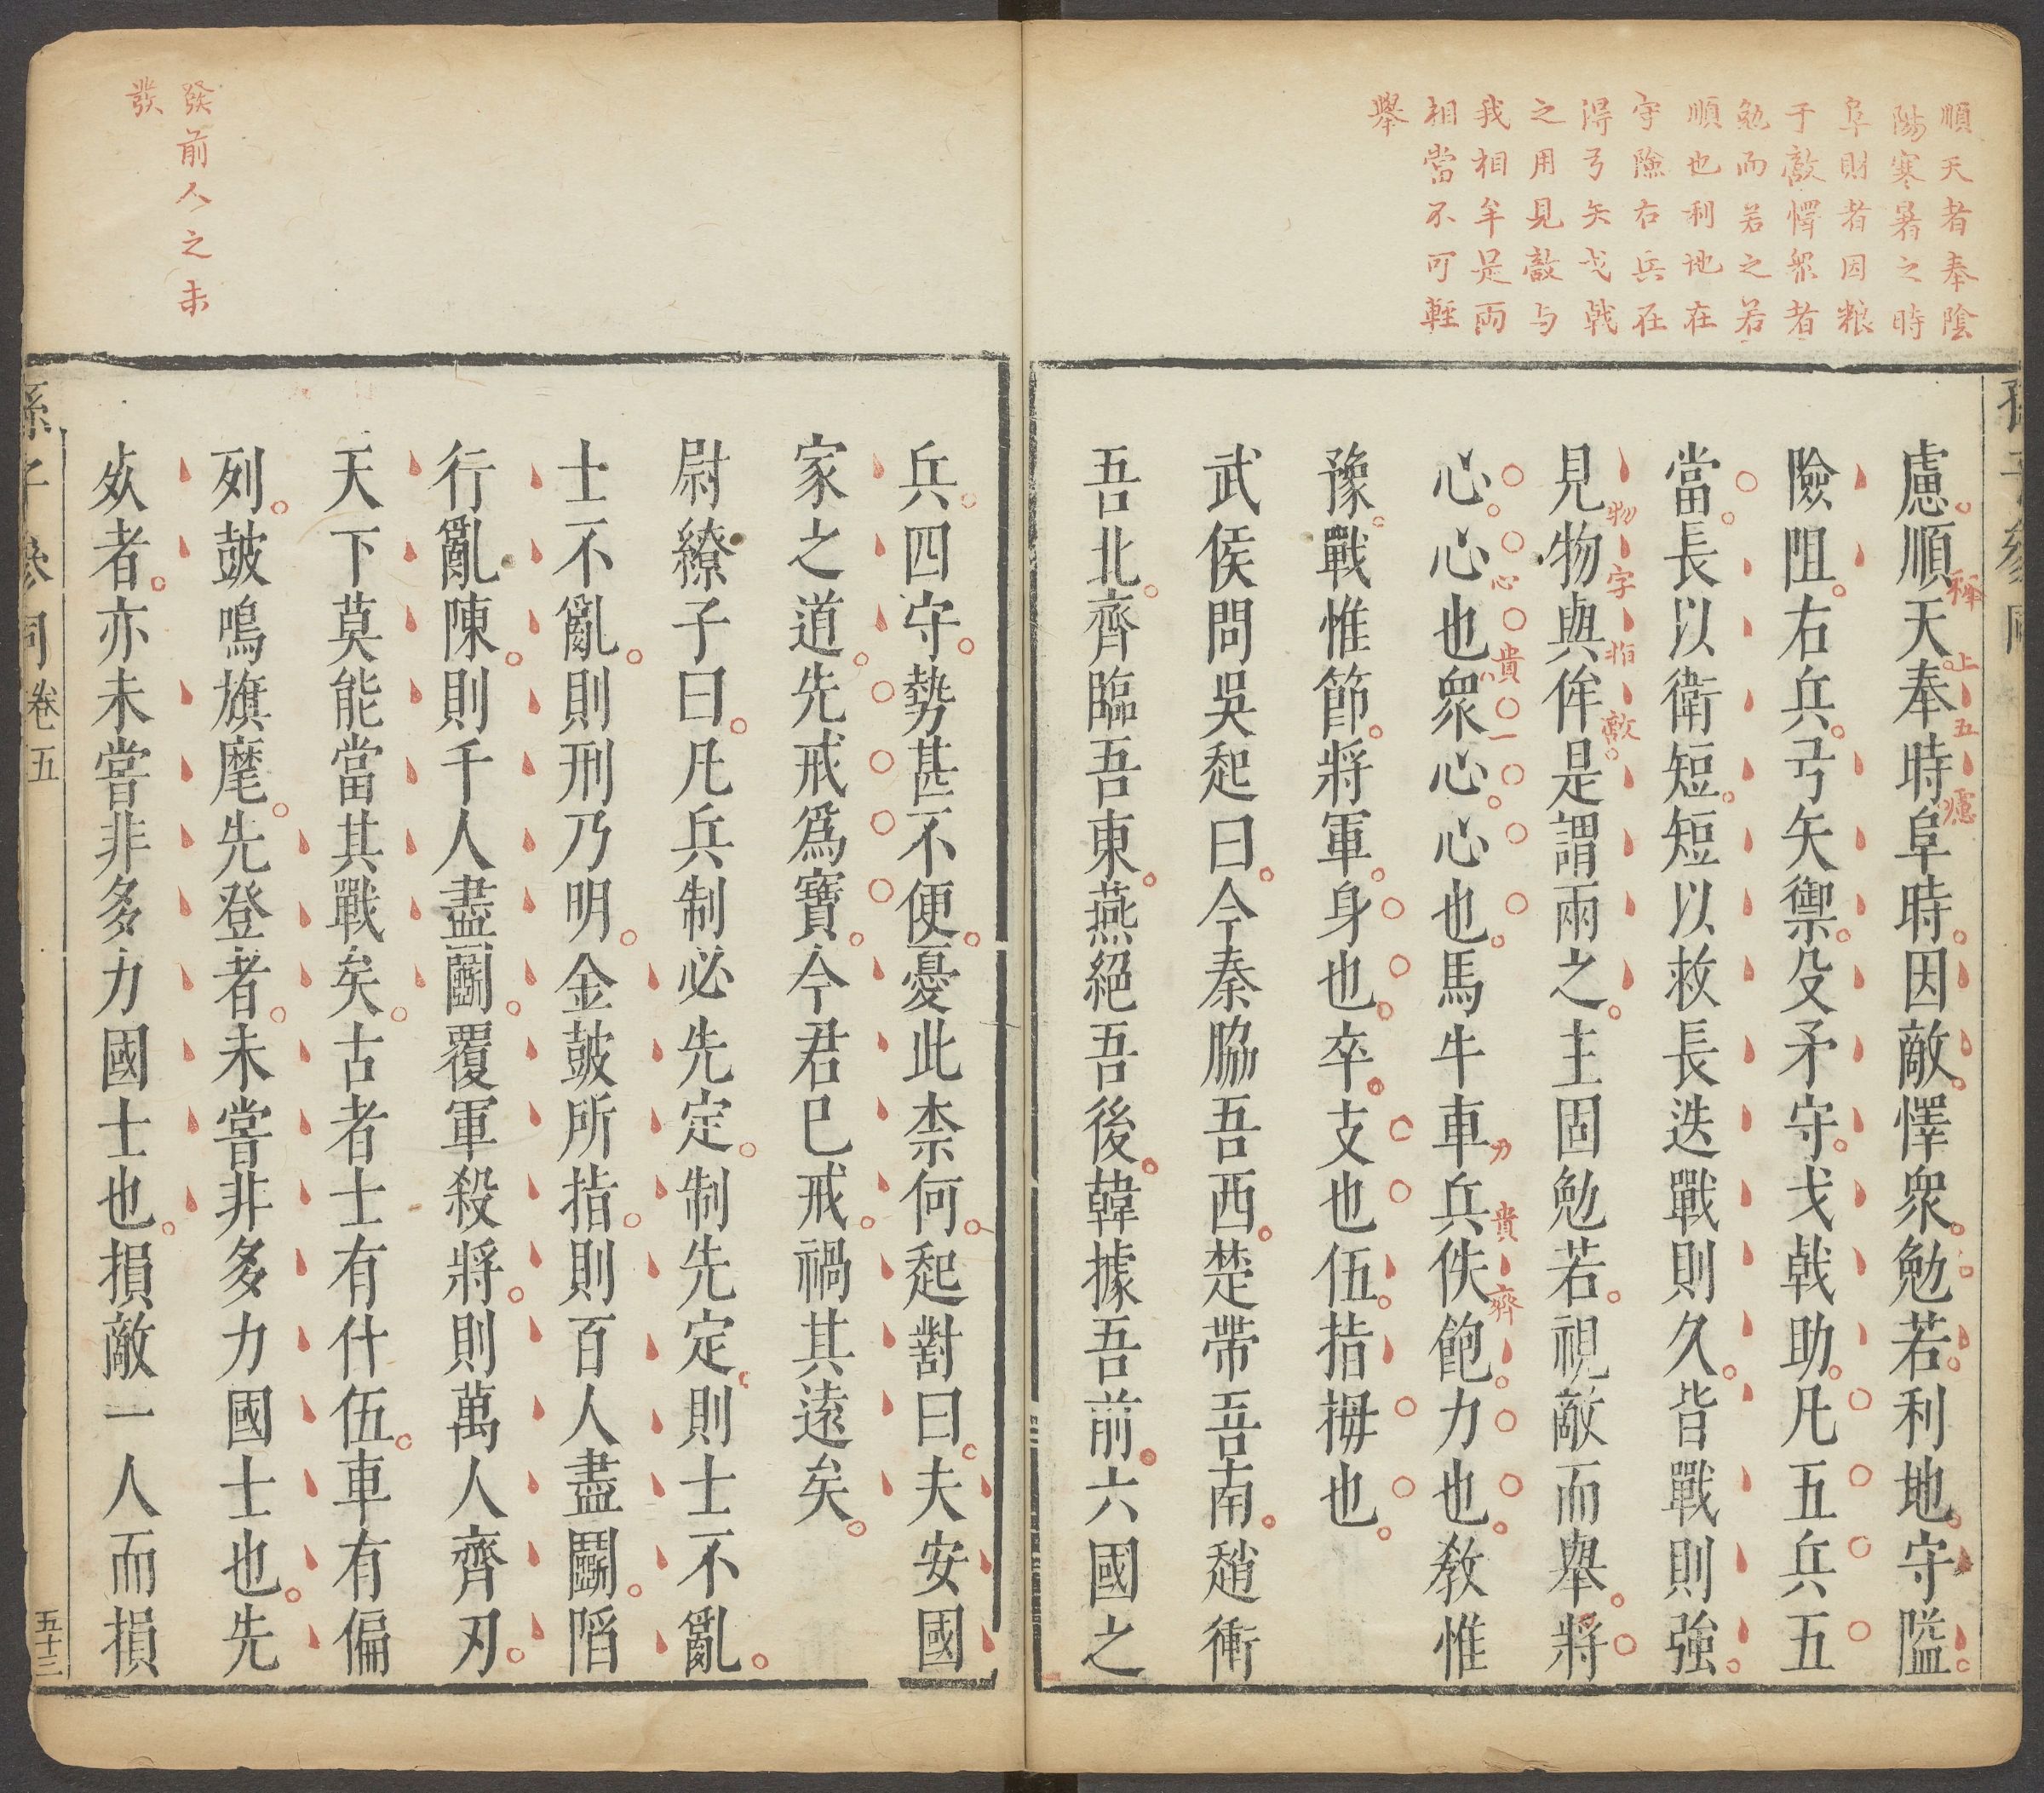 順天者奉陰
陽寒暑之時
阜財者因粮
于敵懌衆者
勉而若之若
順也利地在
守險右兵在
得弓矢戈戟
之用見敵与
我相牟是兩
相當不可輕
舉
慮順天奉時阜時因敵懌衆勉若利地守隘
釋上五慮
險阻右兵弓矢禦殳矛守戈戟助凡五兵五
當長以衛短短以救長迭戰則久皆戰則強
物字指敵
見物與侔是謂兩之主固勉若視敵而舉將
心貴一
力貴齊
心心心也衆心心也馬牛車兵佚飽力也教惟
豫戰惟節將軍身也卒支也伍指拇也
武侯問吳起曰今秦脇吾西楚帶吾南趙衝
吾北齊臨吾東燕絕吾後韓據吾前六國之
發前人之未
發
兵四守勢甚不便憂此柰何起對曰夫安國
家之道先戒爲寶今君已戒禍其遠矣
尉繚子曰凡兵制必先定制先定則士不亂
士不亂則刑乃明金鼓所指則百人盡鬭陷
行亂陳則千人盡鬭覆軍殺將則萬人齊刃
天下莫能當其戰矣古者士有什伍車有偏
列鼓鳴旗麾先登者未嘗非多力國士也先
死者亦未嘗非多力國士也損敵一人而損
孫子參同 卷五 五十三